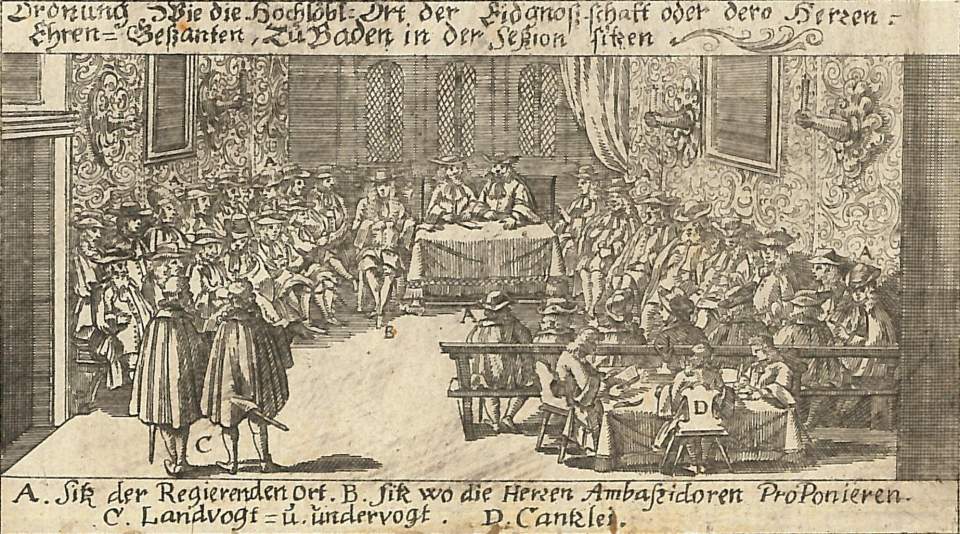 Ordnung Wie die Hochlöbl: Ort der Eidgnoß-schaft oder dero Herren =
Ehren = Geßanten, Zu Baden in der Seßion sitzen
A
A
A
B
C
D
A. Sitz der Regierenden Ort. B. Sitz wo die Herren Ambaßidoren ProPonieren.
C. Landvogt = ů. ůndervogt. D. Cantzlei.